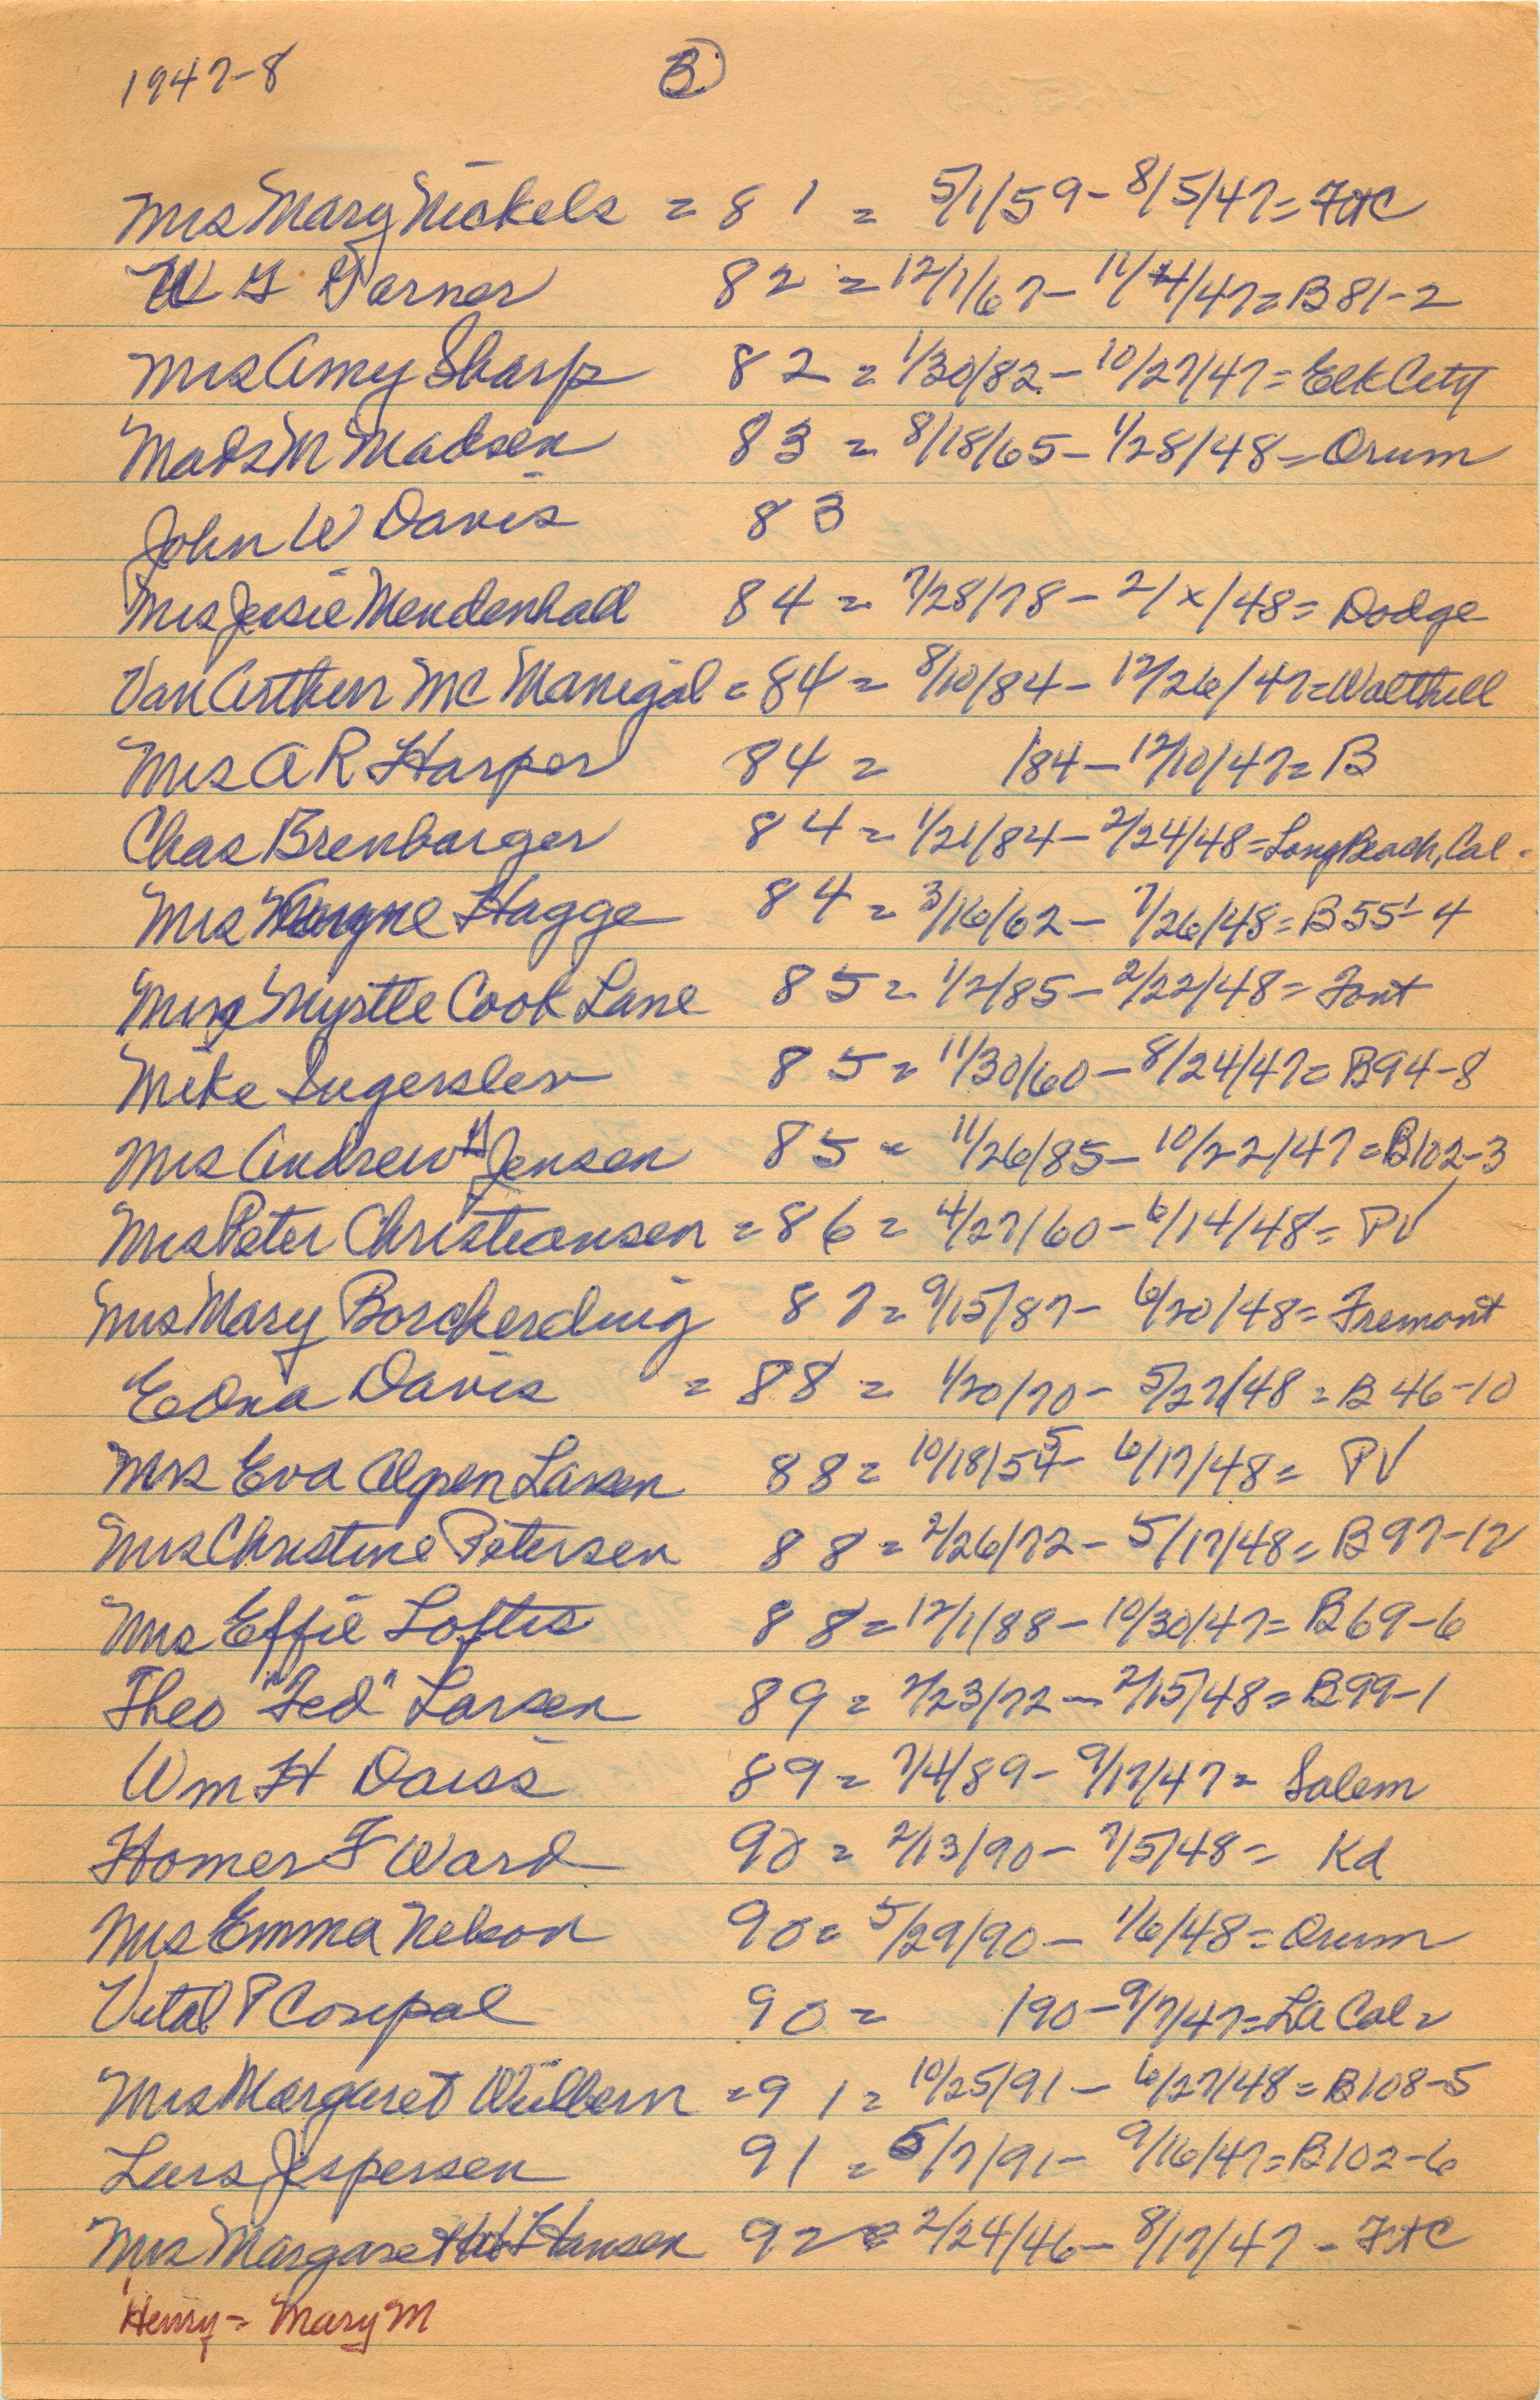 1947-8 B
Mrs Mary Nickels = 81 = 5/1/59 - 8/5/47 = FtC
W G Varner 82 = 12/1/67 - 11/4/47 = B 81-2
Mrs Amy Sharp 82 = 1/30/82 - 10/27/47 = Elk City
Mads M Madsen 83 = 8/18/65 - 1/28/48 = Orum
John W Davis 83
Mrs Jessie Mendenhall 84 = 7/28/78 - 2/x/48 = Dodge
Van Arthur Mc Manigal = 84 = 8/10/84 - 12/26/47 = Walthill
Mrs A R Harper 84 = /84 - 12/10/47 = B
Chas Brenbarger 84 = 1/21/84 - 2/24/48 = Long Beach, Cal.
Mrs Hagge 84 = 3/16/62 - 7/26/48 = B 55-4
Myrtle Cook Lane 85 = 1/2/85 - 2/22/48 = Font
Mike Ingerslev 85 = 11/30/60 - 8/24/47 = B94-8
Mrs Andrew H Jensen 85 = 11/26/85 - 10/22/47 = B102-3
Mrs Peter Christiansen = 86 = 4/27/60 - 6/14/48 = PV
Mrs Mary Borcherding 87 = 9/15/87 - 6/20/48 = Fremont
Edna Davis = 88 = 1/20/70 - 5/27/48 = B 46-10
Mrs Eva Alpen Larsen 88 = 10/18/5 - 6/17/48 = PV
Mrs Christine Petersen 88 = 2/26/72 - 5/17/48 = B 97-12
Mrs Effie Loftis 88 = 12/1/88 - 10/30/47 = B69-6
Theo "Ted" Larsen 89 = 7/23/72 - 2/15/48 = B99-1
Wm H Daiss 89 = 7/4/89 - 9/17/47 = Salem
Homer F Ward 90 = 2/13/90 - 7/5/48 = Kd
Mrs Emma Nelson 90 = 5/29/90 - 1/6/48 = Orum
Vital P 90 = /90 - 9/7/47 = LA Cal =
Mrs Margaret Wulbern = 91 = 10/25/91 - 6/27/48 = B108-5
Lars Jespersen 91 = 5/7/91 - 9/16/47 = B102-6
Mrs Margaret Hansen 92 = 2/24/46 - 8/17/47 - FtC
Henry = Mary M